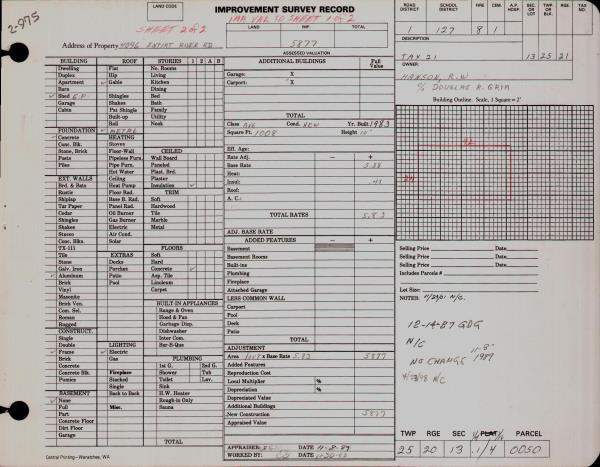 2-975
LAND CODE
IMPROVEMENT SURVEY RECORD
ROAD DISTRICT
SCHOOL DISTRICT
FIRE
CEM.
A.P. HOSP.
SEC. OR LOT
TWP. OR BLK.
RGE.
TAX NO
SHEET 2 of 2
IMP VAL TO SHEET 1 of 2
LAND
IMP.
TOTAL
127 8 1
5877
Address of Property 4096 ENTIAT RIVER RD
TAX 21
13 25 21
OWNER:
HANSON, R.W
% DOUGLAS A. GRIM
ASSESSED VALUATION
BUILDING ROOF STORIES 1 2 A B
ADDITIONAL BUILDINGS
Full Value
Building Outline. Scale, 1 Square = 2'
Dwelling Flat No. Rooms
Duplex Hip Living
Apartment Gable Kitchen
Barn Dining
Shed G.P. Shingles Bed
Garage Shakes Bath
Cabin Pat Shingle Family
Built-up Utility
Roll Nook
Garage: X
Carport: X
TOTAL
Class AVG Cond. NEW Yr. Built 1983
Square Ft. 1008 Height 10'
42
24
FOUNDATION METAL
Concrete HEATING
Conc. Blk. Stoves CEILED
Stone, Brick Floor-Wall Wall Board
Posts Pipeless Furn. Paneled
Piles Pipe Furn. Plast. Brd.
Hot Water Plaster
EXT. WALLS Ceiling Insulation
Brd. & Bats Heat Pump
Rustic Floor Rad. TRIM
Shiplap Base B. Rad. Soft
Tar Paper Panel Rad. Hardwood
Cedar Oil Burner Tile
Shingles Gas Burner Marble
Shakes Electric Metal
Stucco Air Cond.
Conc. Blks. Solar
TX-111 FLOORS
Tile EXTRAS Soft
Stone Decks Hard
Galv. Iron Porches Concrete
Aluminum Patio Asp. Tile
Brick Pool Linoleum
Vinyl Carpet
Masonite
Brick Ven. BUILT-IN APPLIANCES
Com. Sel. Range & Oven
Roman Hood & Fan
Ragged Garbage Disp.
CONSTRUCT. Dishwasher
Single Inter Com.
Double LIGHTING Bar-B-Que
Frame Electric
Brick Gas PLUMBING
Concrete 1st G. 2nd G.
Concrete Blk. Fireplace Shower Tub
Pumice Stacked Toilet Lav.
Single Sink
BASEMENT Back to Back H.W. Heater
None Rough-in Only
Full Misc. Sauna
Part
Concrete Floor
Dirt Floor
Garage TOTAL
Eff. Age:
Rate Adj. − +
Base Rate 5.38
Heat:
Insul: .43
Roof:
A. C.:
TOTAL RATES 5.83
ADJ. BASE RATE
ADDED FEATURES − +
Basement
Basement Rooms
Built-ins
Plumbing
Fireplace
Attached Garage
LESS COMMON WALL
Carport
Pool
Deck
Patio
TOTAL
ADJUSTMENT
Area 1008 x Base Rate 5.83 5877
Added Features
Reproduction Cost
Local Multiplier %
Depreciation %
Depreciated Value
Additional Buildings
New Construction 5877
Appraised Value
APPRAISER: DATE
WORKED BY: DATE
Selling Price Date
Selling Price Date
Selling Price Date
Includes Parcels #
Lot Size:
NOTES:
12-14-87 GDG
N/C
NO CHANGE 1989
N/C
TWP RGE SEC ¼ PLAT ¼ PARCEL
25 20 13 .1 /4 0050
Central Printing - Wenatchee, WA